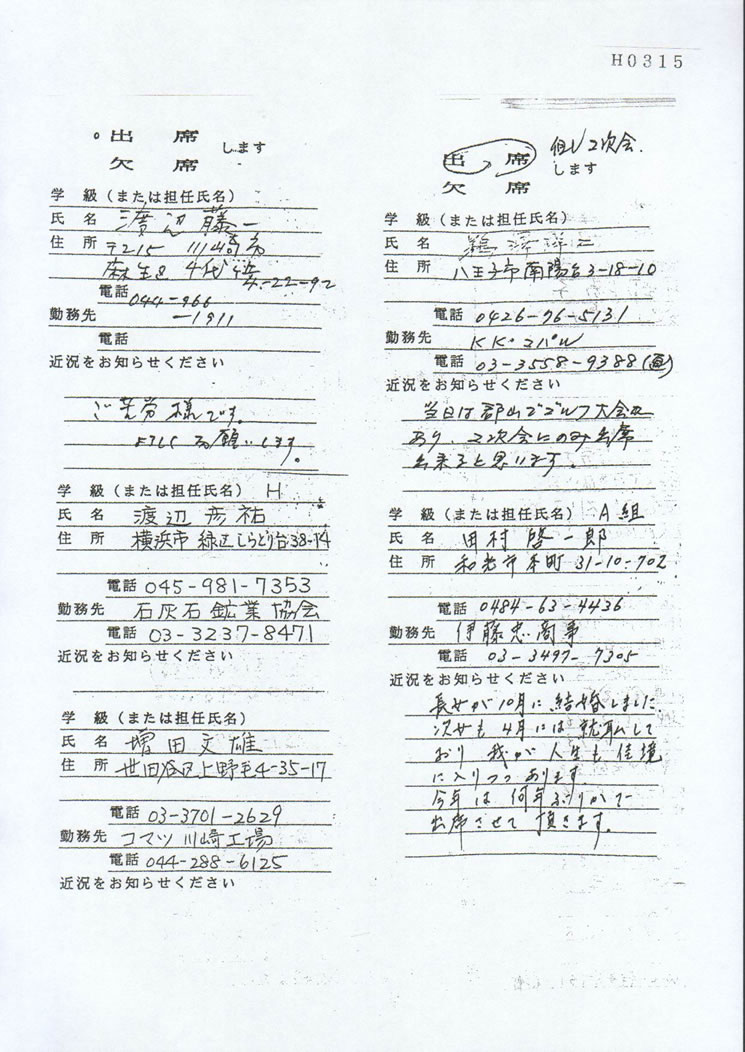 H0315
出席
欠席
します
学級(または担任氏名)
氏名 渡辺藤一
住所 〒215 川崎市
麻生区 千代ヶ丘
4-22-92
電話 044-966
-1911
勤務先
電話
近況をお知らせください
ご苦労様です。
よろしくお願いします。
学級(または担任氏名) H
氏名 渡辺彦祐
住所 横浜市緑区しらとり台38-14
電話 045-981-7353
勤務先 石灰石鉱業協会
電話 03-3237-8471
近況をお知らせください
学級(または担任氏名)
氏名 増田文雄
住所 世田谷区上野毛4-35-17
電話 03-3701-2629
勤務先 コマツ川崎工場
電話 044-288-6125
近況をお知らせください
出席
欠席
します
但し2次会.
学級(または担任氏名)
氏名
住所 八王子市南陽台3-18-10
電話 0426-76-5131
勤務先 KK.コパル
電話 03-3558-9388(直)
近況をお知らせください
当日は郡山でゴルフ大会が
あり、2次会にのみ出席
出来ると思います。
学級(または担任氏名) A組
氏名 田村啓一郎
住所 和光市本町31-10-702
電話 0484-63-4436
勤務先 伊藤忠商事
電話 03-3497-7305
近況をお知らせください
長女が10月に結婚しました.
次女も4月には就職して
おり 我が人生も佳境
に入りつつあります.
今年は何年ぶりかで
出席させて頂きます.